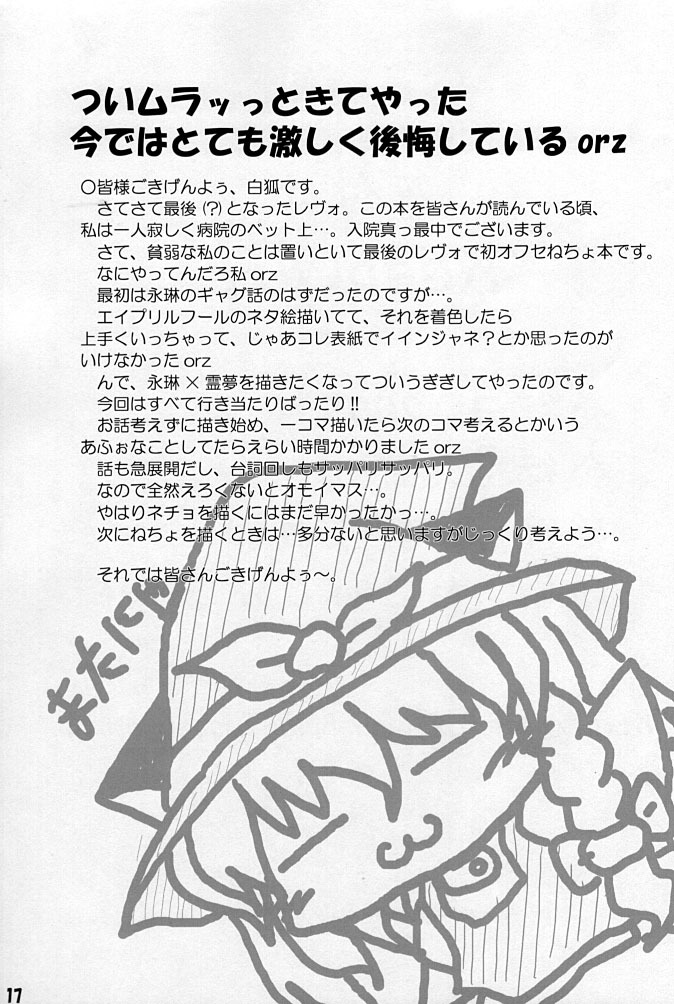 ついムラッっときてやった
今ではとても激しく後悔しているorz
〇皆様ごきげんよぅ、白狐です。
さてさて最後(?)となったレヴォ。この本を皆さんが読んでいる頃、
私は一人寂しく病院のベット上…。入院真っ最中でございます。
さて、貧弱な私のことは置いといて最後のレヴォで初オフセねちょ本です。
なにやってんだろ私orz
最初は永琳のギャグ話のはずだったのですが…。
エイプリルフールのネタ絵描いてて、それを着色したら
上手くいっちゃって、じゃあコレ表紙でイインジャネ?とか思ったのが
いけなかったorz
んで、永琳×霊夢を描きたくなってついうぎぎしてやったのです。
今回はすべて行き当たりばったり!!
お話考えずに描き始め、一コマ描いたら次のコマ考えるとかいう
あふぉなことしてたらえらい時間かかりましたorz
話も急展開だし、台詞回しもサッパリサッパリ。
なので全然えろくないとオモイマス…。
やはりネチョを描くにはまだ早かったかっ…。
次にねちょを描くときは…多分ないと思いますがじっくり考えよう…。
それでは皆さんごきげんよぅ〜。
またにゃ
17